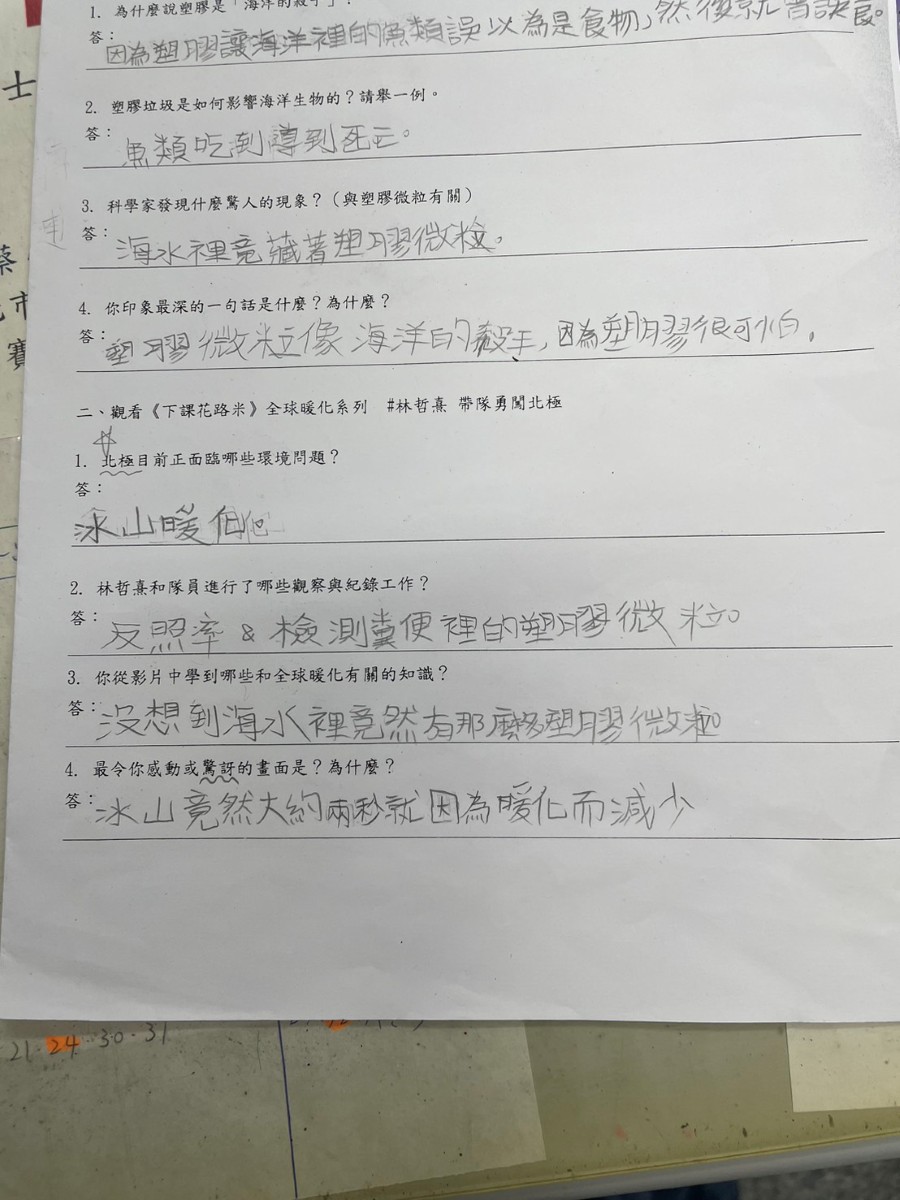 1. 為什麼說塑膠是「海洋的殺手」？
答：因為塑膠讓海洋裡的魚類誤以為是食物，然後就會誤食。
2. 塑膠垃圾是如何影響海洋生物的？請舉一例。
答：魚類吃到導到死亡。
3. 科學家發現什麼驚人的現象？（與塑膠微粒有關）
答：海水裡竟藏著塑膠微粒。
4. 你印象最深的一句話是什麼？為什麼？
答：塑膠微粒像海洋的殺手，因為塑膠很可怕。
二、觀看《下課花路米》全球暖化系列 #林哲熹 帶隊勇闖北極
1. 北極目前正面臨哪些環境問題？
答：
冰山暖化
2. 林哲熹和隊員進行了哪些觀察與紀錄工作？
答：反照率 & 檢測糞便裡的塑膠微粒。
3. 你從影片中學到哪些和全球暖化有關的知識？
答：沒想到海水裡竟然有那麼多塑膠微粒。
4. 最令你感動或驚訝的畫面是？為什麼？
答：冰山竟然大約兩秒就因為暖化而減少
士
蔡
市
賽
21. 24. 30. 31